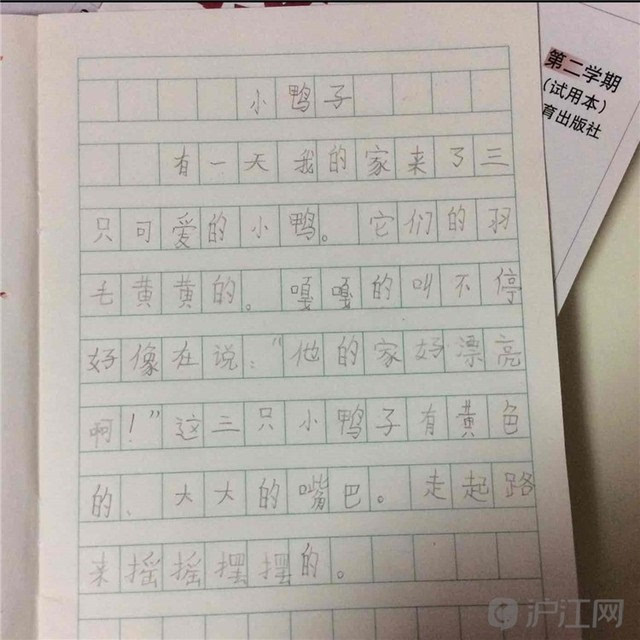 第二学期
(试用本)
育出版社
小鸭子
有一天我的家来了三
只可爱的小鸭。它们的羽
毛黄黄的。嘎嘎的叫不停
好像在说:“他的家好漂亮
啊!”这三只小鸭子有黄色
的、大大的嘴巴。走起路
来摇摇摆摆的。
沪江网